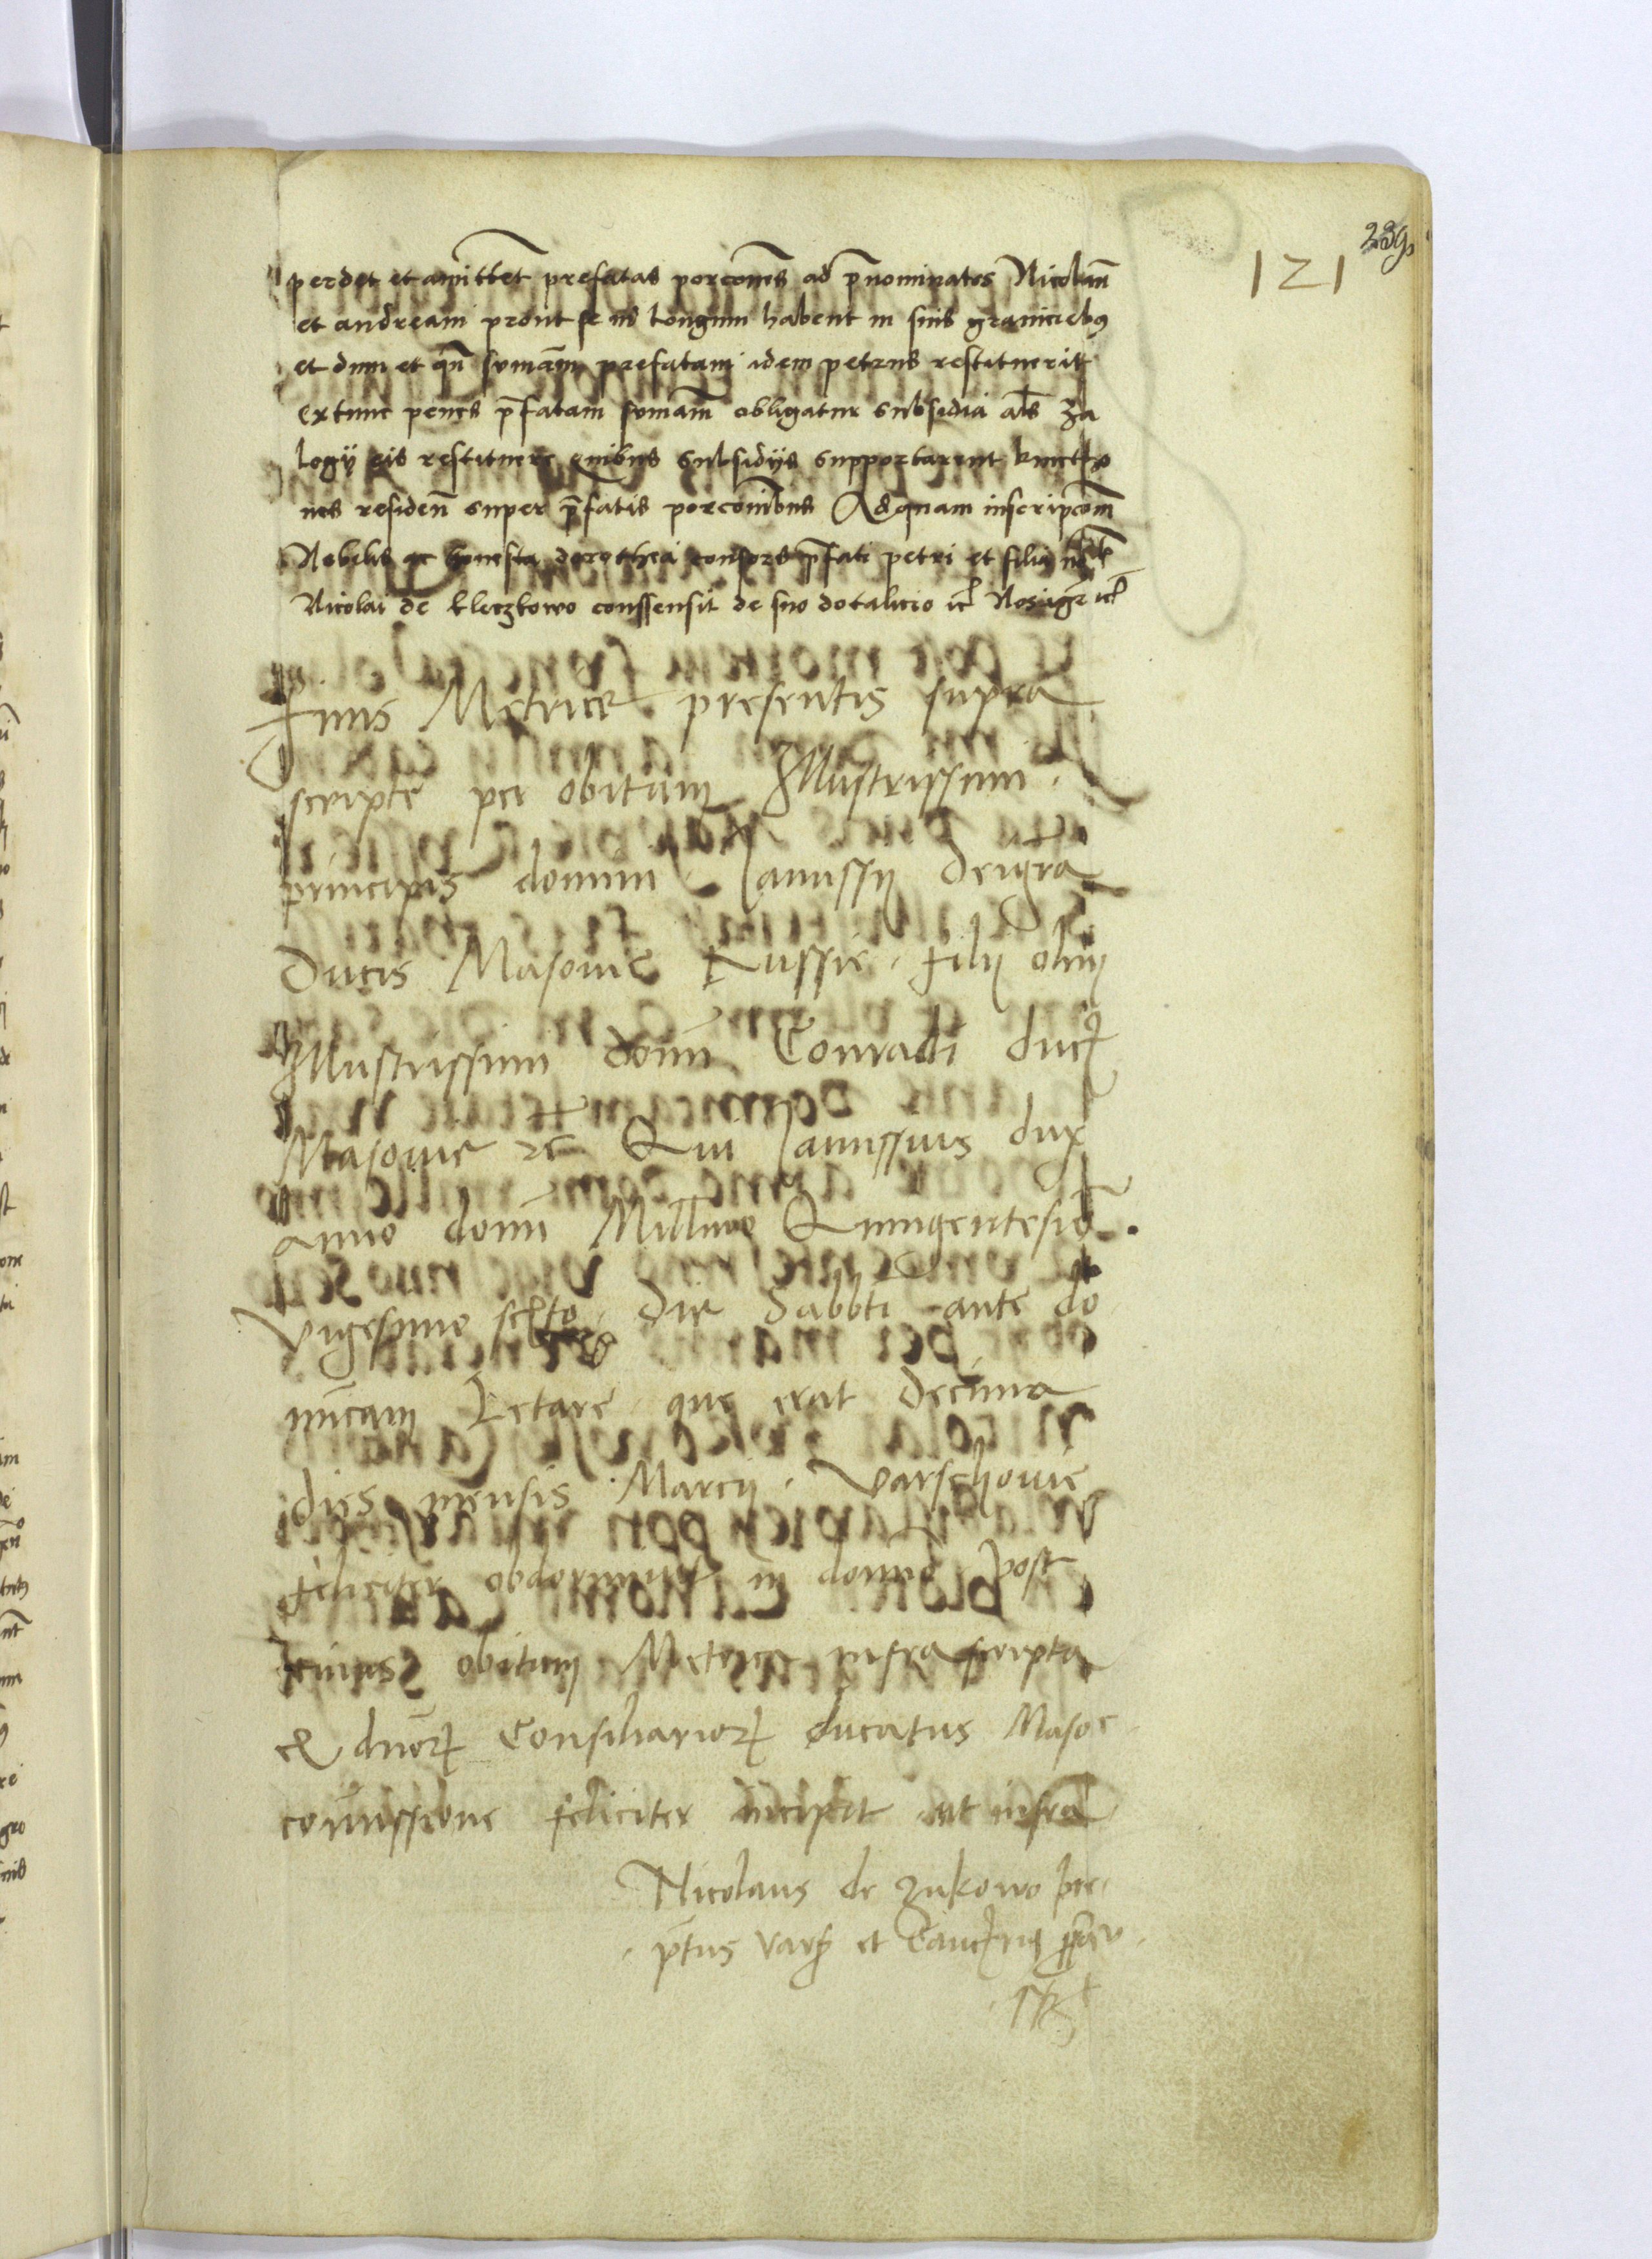 239
121
perdet et amittet prefatas porcōnes ad p̄nominatos Nicolaū
et andream prout se in longum habent in suis graniciebꝰ
et dum et qn̄ sumām prefatam idem petrus restituerit
extunc penes p̄fatam sumam̄ obligatur subsidia al̄s za
logy eis restituere quibus subsidijs supportarent kmetho
nes residen̄ super p̄fatis porcōnibus Ad quam inscripcōm̄
Nobilis ac honesta dorothea consors p̄fati petri et filia
Nicolai de kleczkowo conssensit de suo dotalicio
Finis Metrice presentis supra
scripte per obitum Illustrissimi
principis domini Janussij dei gr̄a
Ducis Masovie Russie filij olim
Illustrissimi domī Conradi duc
Masovie etc̄ Qui Janussius dux
anno domī Millīmo Quingentesīo
vigesimo sexto die Sabbti ante do
mīcam Letare que erat Decima
dies mensis Marcij Varschovie
feliciter obdormivit in domīo post
cuius obitum Metrica infrascripta
ex dnorꝝ Consiliariorꝝ ducatus Masoc
comissione feliciter incipit ut infra
Nicolaus de Zukowo
p̄tus varsȝ et